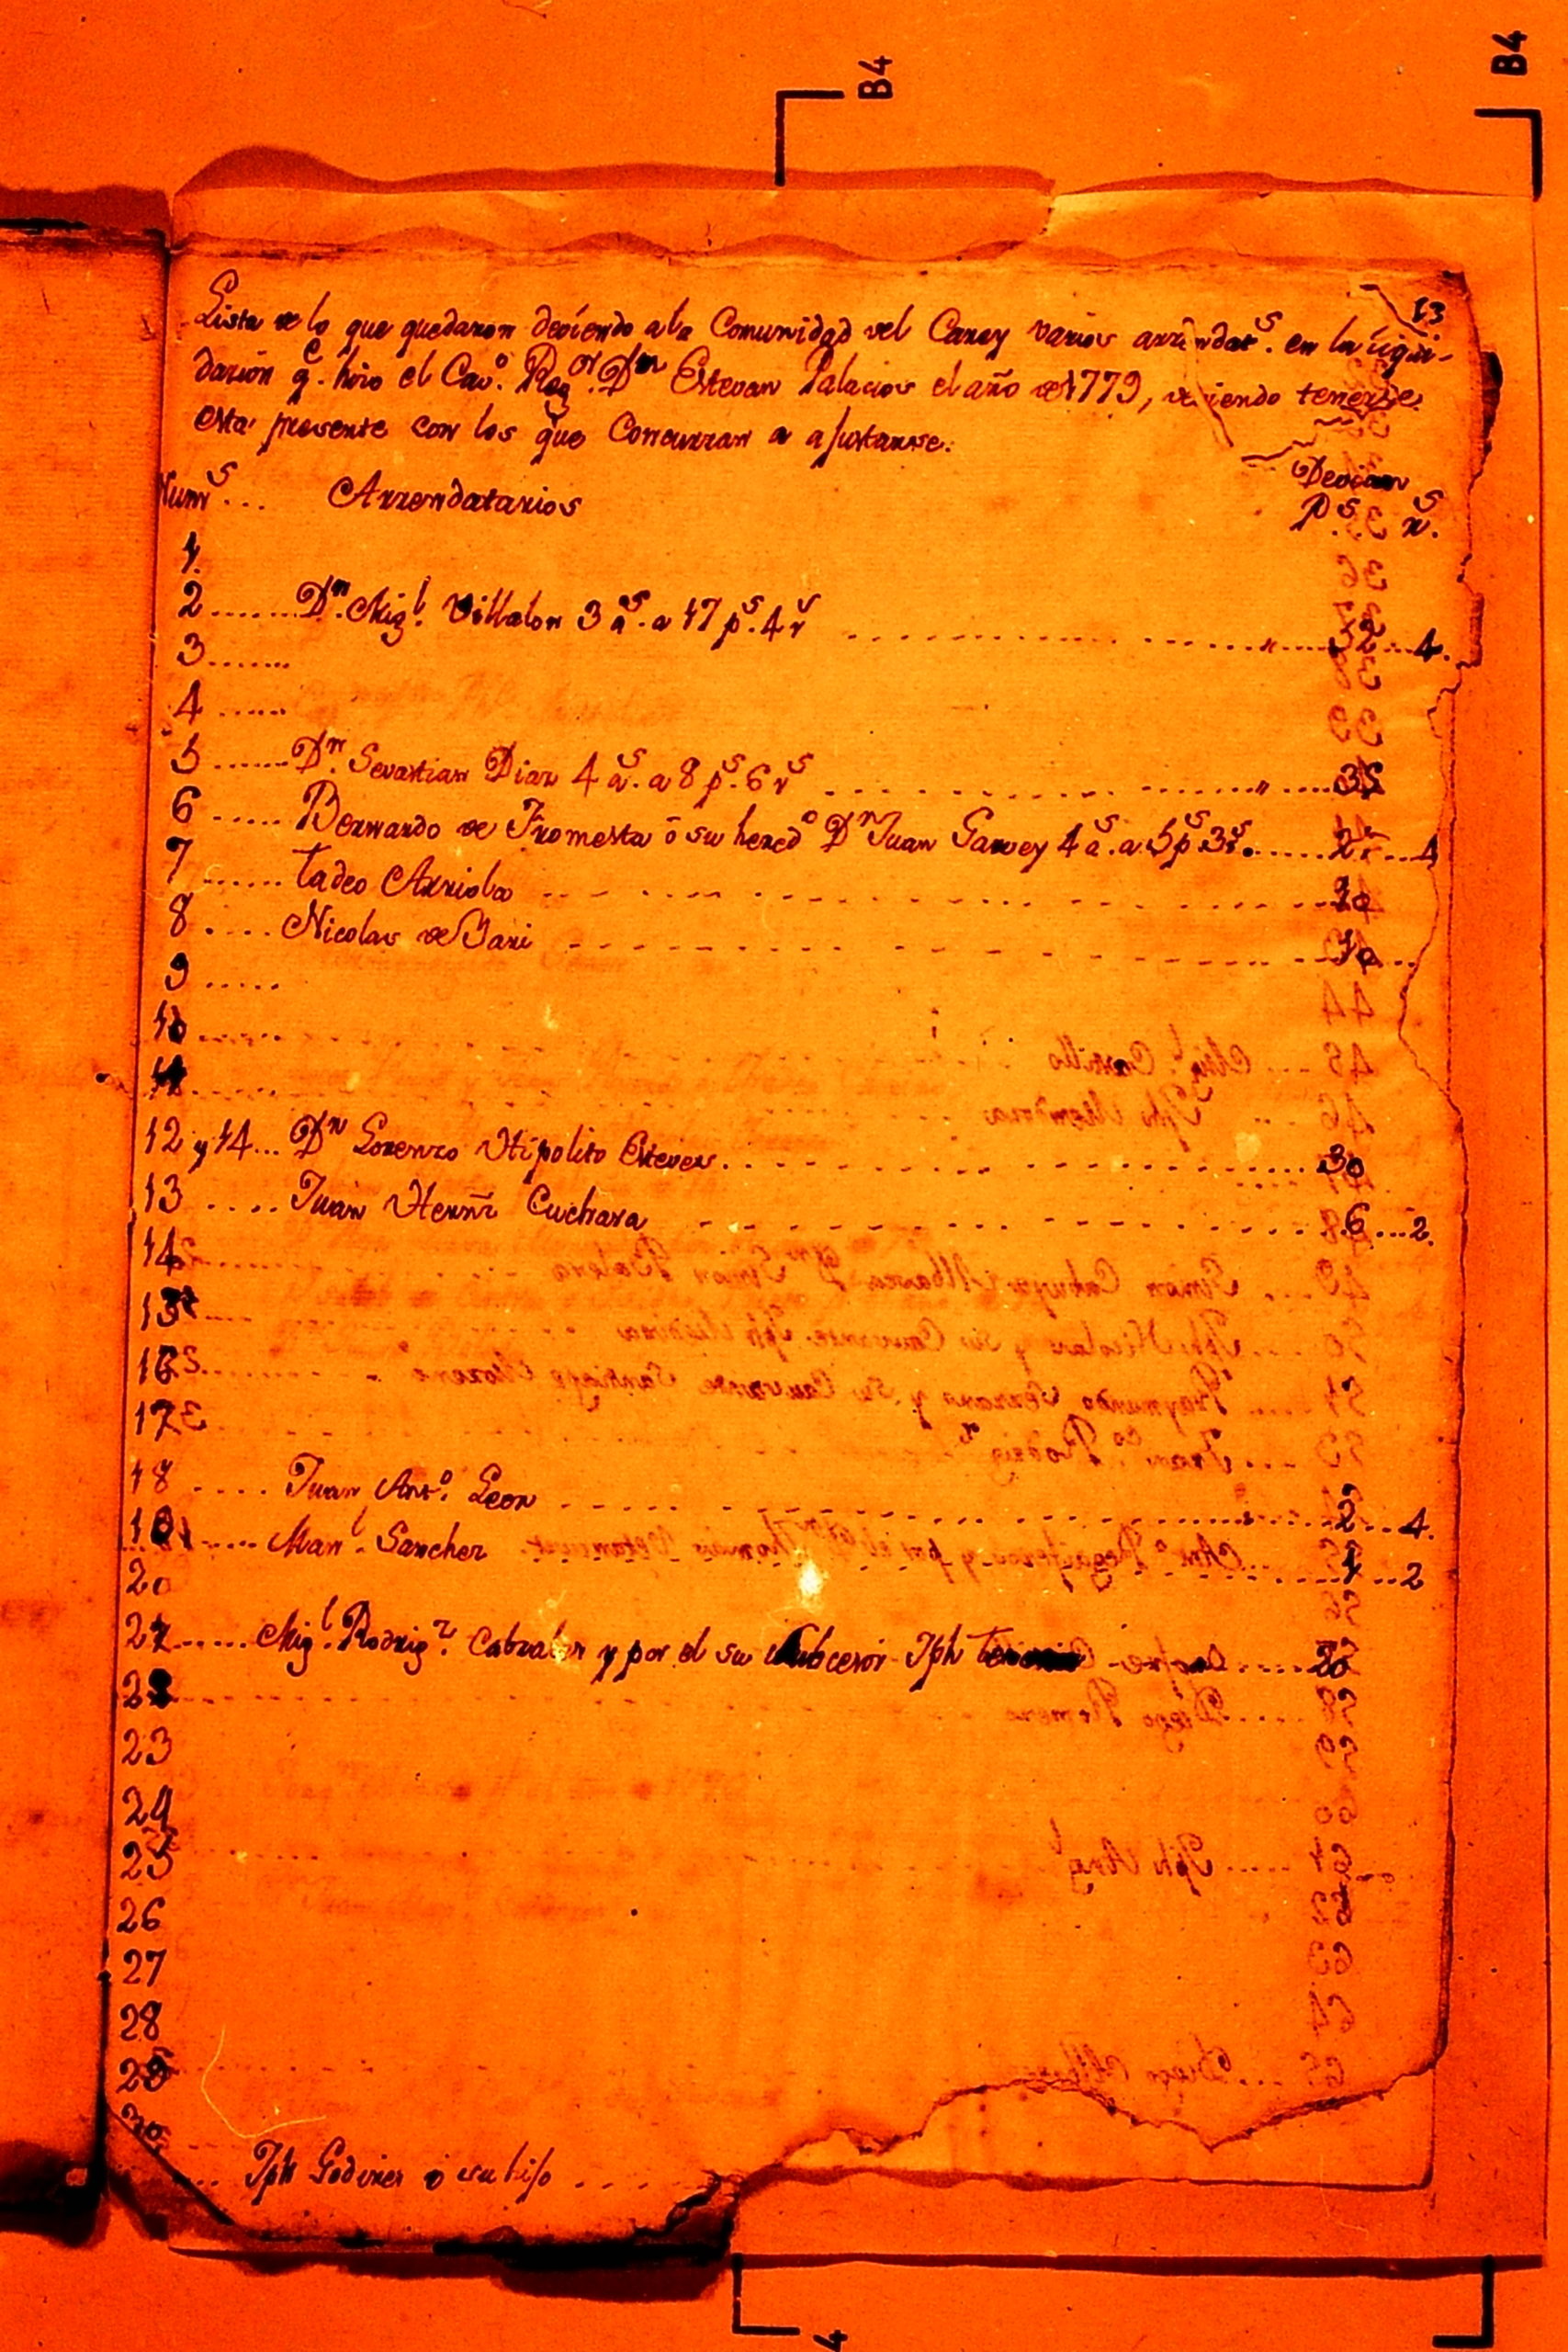 B4
B4
13
Lista de lo que quedaron deviendo ala Comunidad del Caney varios arrendat.s en la liqui-
dacion q.e hizo el Cav.o Reg.or D.n Estevan Palacios el año de 1779, deviendo tenerse
esta presente con los que Concurran a ajustarse.
Num.s ... Arrendatarios Devian
p.s r.s
1.
2 ....... D.n Mig.l Villalon 3 a.s a 17 p.s 4 r.s ....... 52 ... 4.
3 .......
4 .....
5 ...... D.n Sevastian Diaz 4 a.s a 8 p.s 6 r.s ....... 35
6 ..... Bernardo de Fromesta ô su hered.o D.n Juan Garvey 4 a.s a 5 p.s 3 r.s ....... 21 ... 4
7 ...... Tadeo Arriola ....... 
8 .... Nicolas de Bari ....... 10
9 .....
10 .....
11 .....
12 y 14 ... D.n Lorenzo Hipolito Estevez ....... 30
13 .... Juan Hernz Cuchara ....... 6 ... 2.
14
15
16
17
18 .... Juan Ant.o Leon ....... 2 ... 4.
19 ..... Man.l Sanchez ....... 1 ... 2
20
21 ...... Mig.l Rodrig.z Cabrales y por el su Subcesor Jph ....... 20
22
23
24
25
26
27
28
29
30
... Jph Godinez ô su hijo ....
4